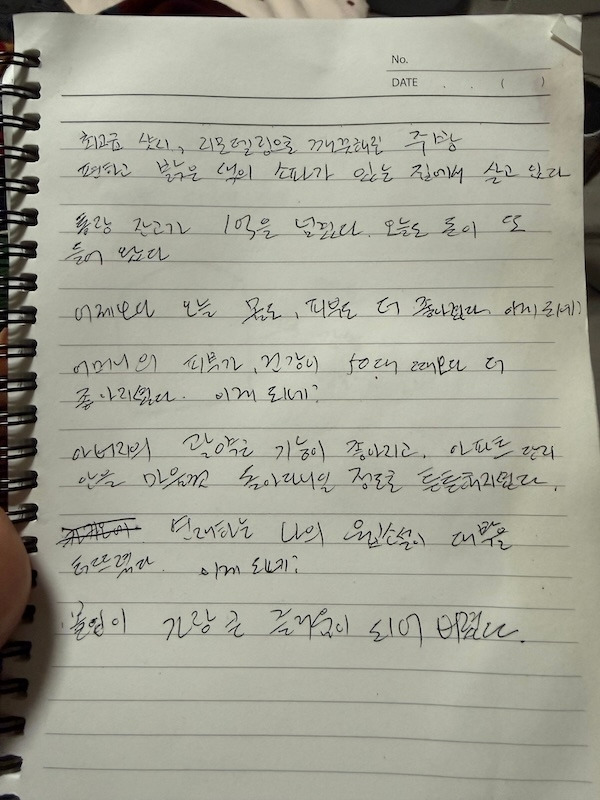 No.
DATE . . ( )
최고급 샷시, 리모델링으로 깨끗해진 주방
편하고 붉은 색의 소파가 있는 집에서 살고 있다
통장 잔고가 1억을 넘겼다. 오늘도 돈이 또
들어 왔다
어제보다 오늘 몸도, 피부도 더 좋아졌다. 이게 되네?
어머니의 피부가, 건강이 50대 때보다 더
좋아지셨다. 이게 되네?
아버지의 기능이 좋아지고, 아파트 단지
안을 마음껏 돌아다니실 정도로 튼튼해지셨다.
연재하는 나의 웹소설이 대박을
터뜨렸다. 이게 되네?
몰입이 가장 큰 즐거움이 되어 버렸다.